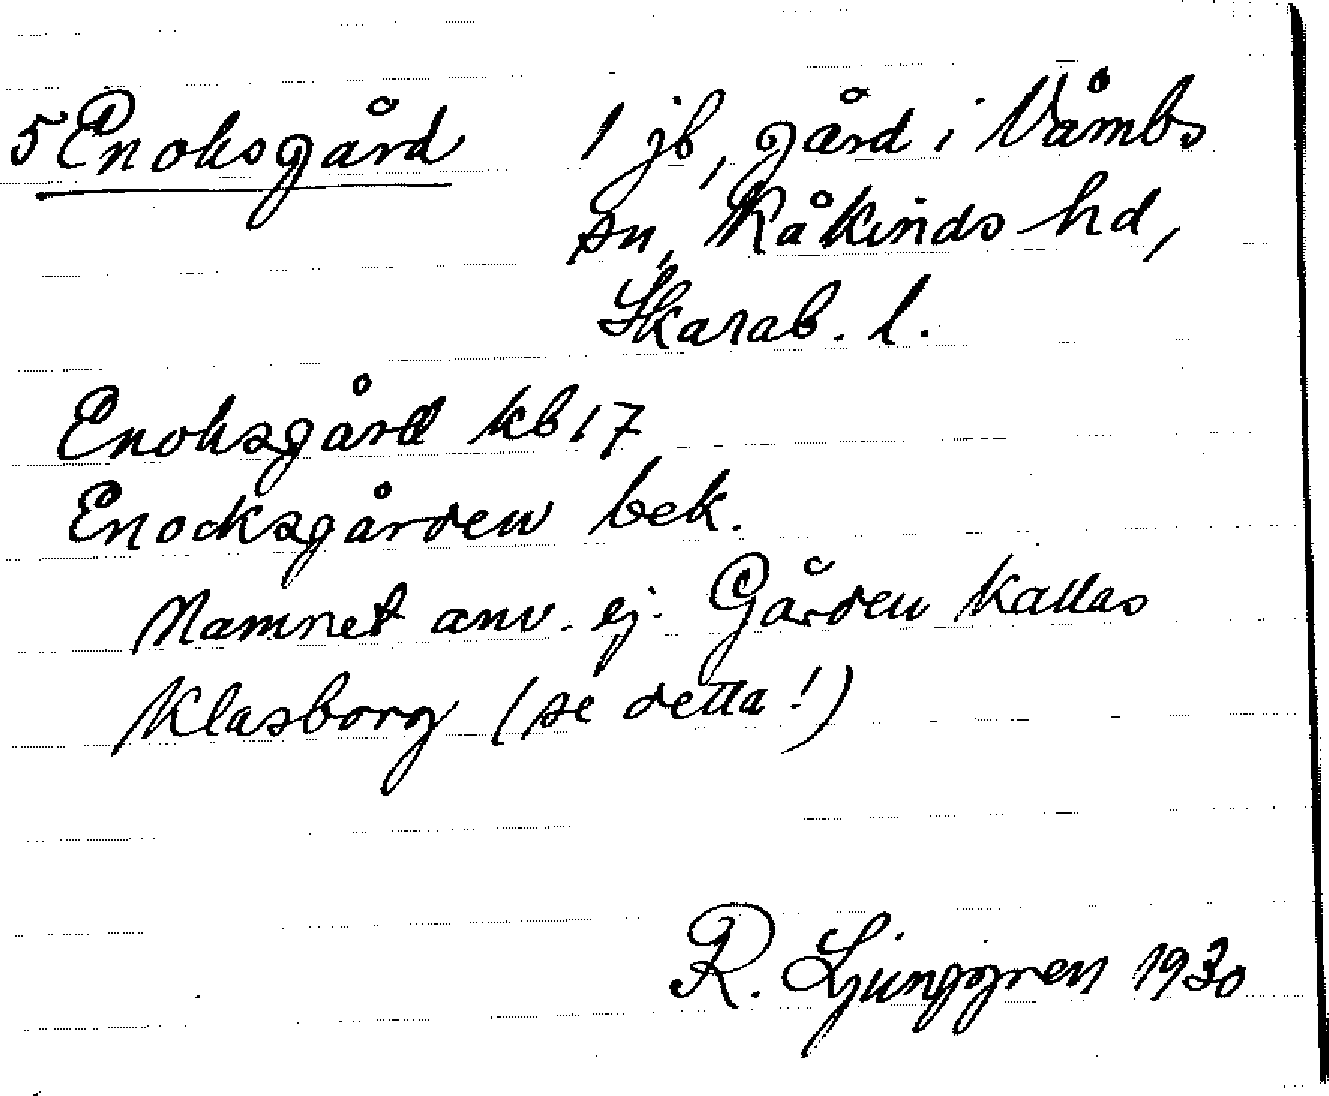 5 Enoksgård 1 jb, gård i Våmbs
sn, Kåkinds hd,
Skarab. l.
Enoksgård kb 17
Enocksgården bek.
Namnet anv. ej. Gården kallas
Klasborg (se detta!)
R. Ljunggren 1930